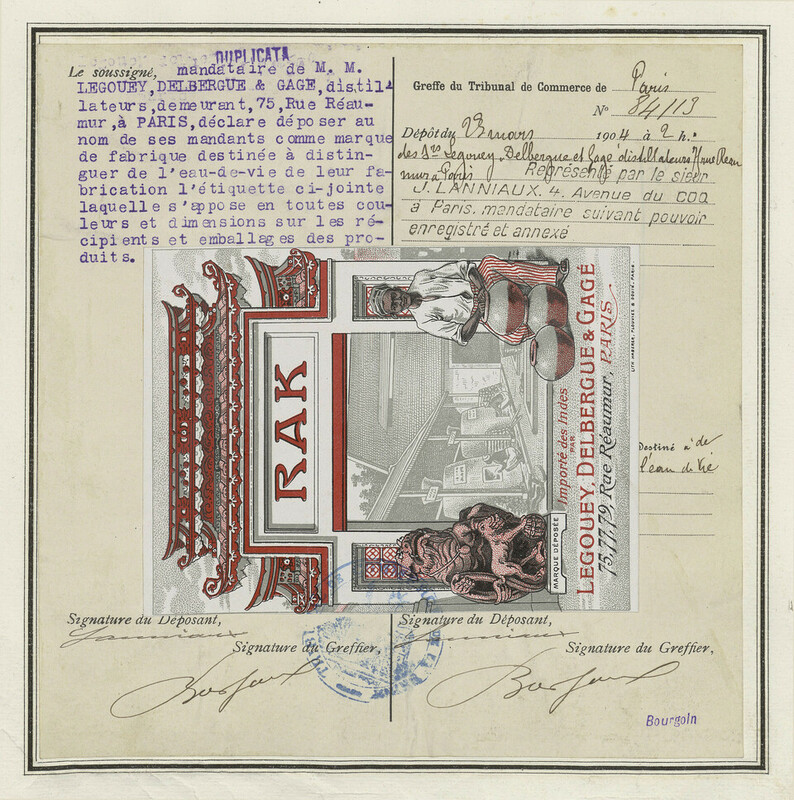 DUPLICATA
Le soussigné, mandataire de M. M.
LEGOUEY,DELBERGUE & GAGE,distil-
lateurs,demeurant,75,Rue Réau-
mur,à PARIS,déclare déposer au
nom de ses mandants comme marque
de fabrique destinée à distin-
guer de l'eau-de-vie de leur fa-
brication l'étiquette ci-jointe
laquelle s'appose en toutes cou-
leurs et dimensions sur les ré-
cipients et emballages des pro-
duits.
Greffe du Tribunal de Commerce de Paris
No 84113
Dépôt du 23 mars 1904 à 2 h.
des Srs Legouey, Delbergue et Gagé distillateurs rue Réau
mur à Paris Représenté par le sieur
J. LANNIAUX. 4. Avenue du COQ
à Paris. mandataire suivant pouvoir
enregistré et annexé
RAK
Importé des Indes
PAR
LEGOUEY, DELBERGUE & GAGÉ
75,77,79, Rue Réaumur, PARIS
MARQUE DÉPOSÉE
Destiné à de
l'eau de Vie
Signature du Déposant,
Lanniaux
Signature du Greffier,
Signature du Déposant,
Lanniaux
Signature du Greffier,
Bourgoin